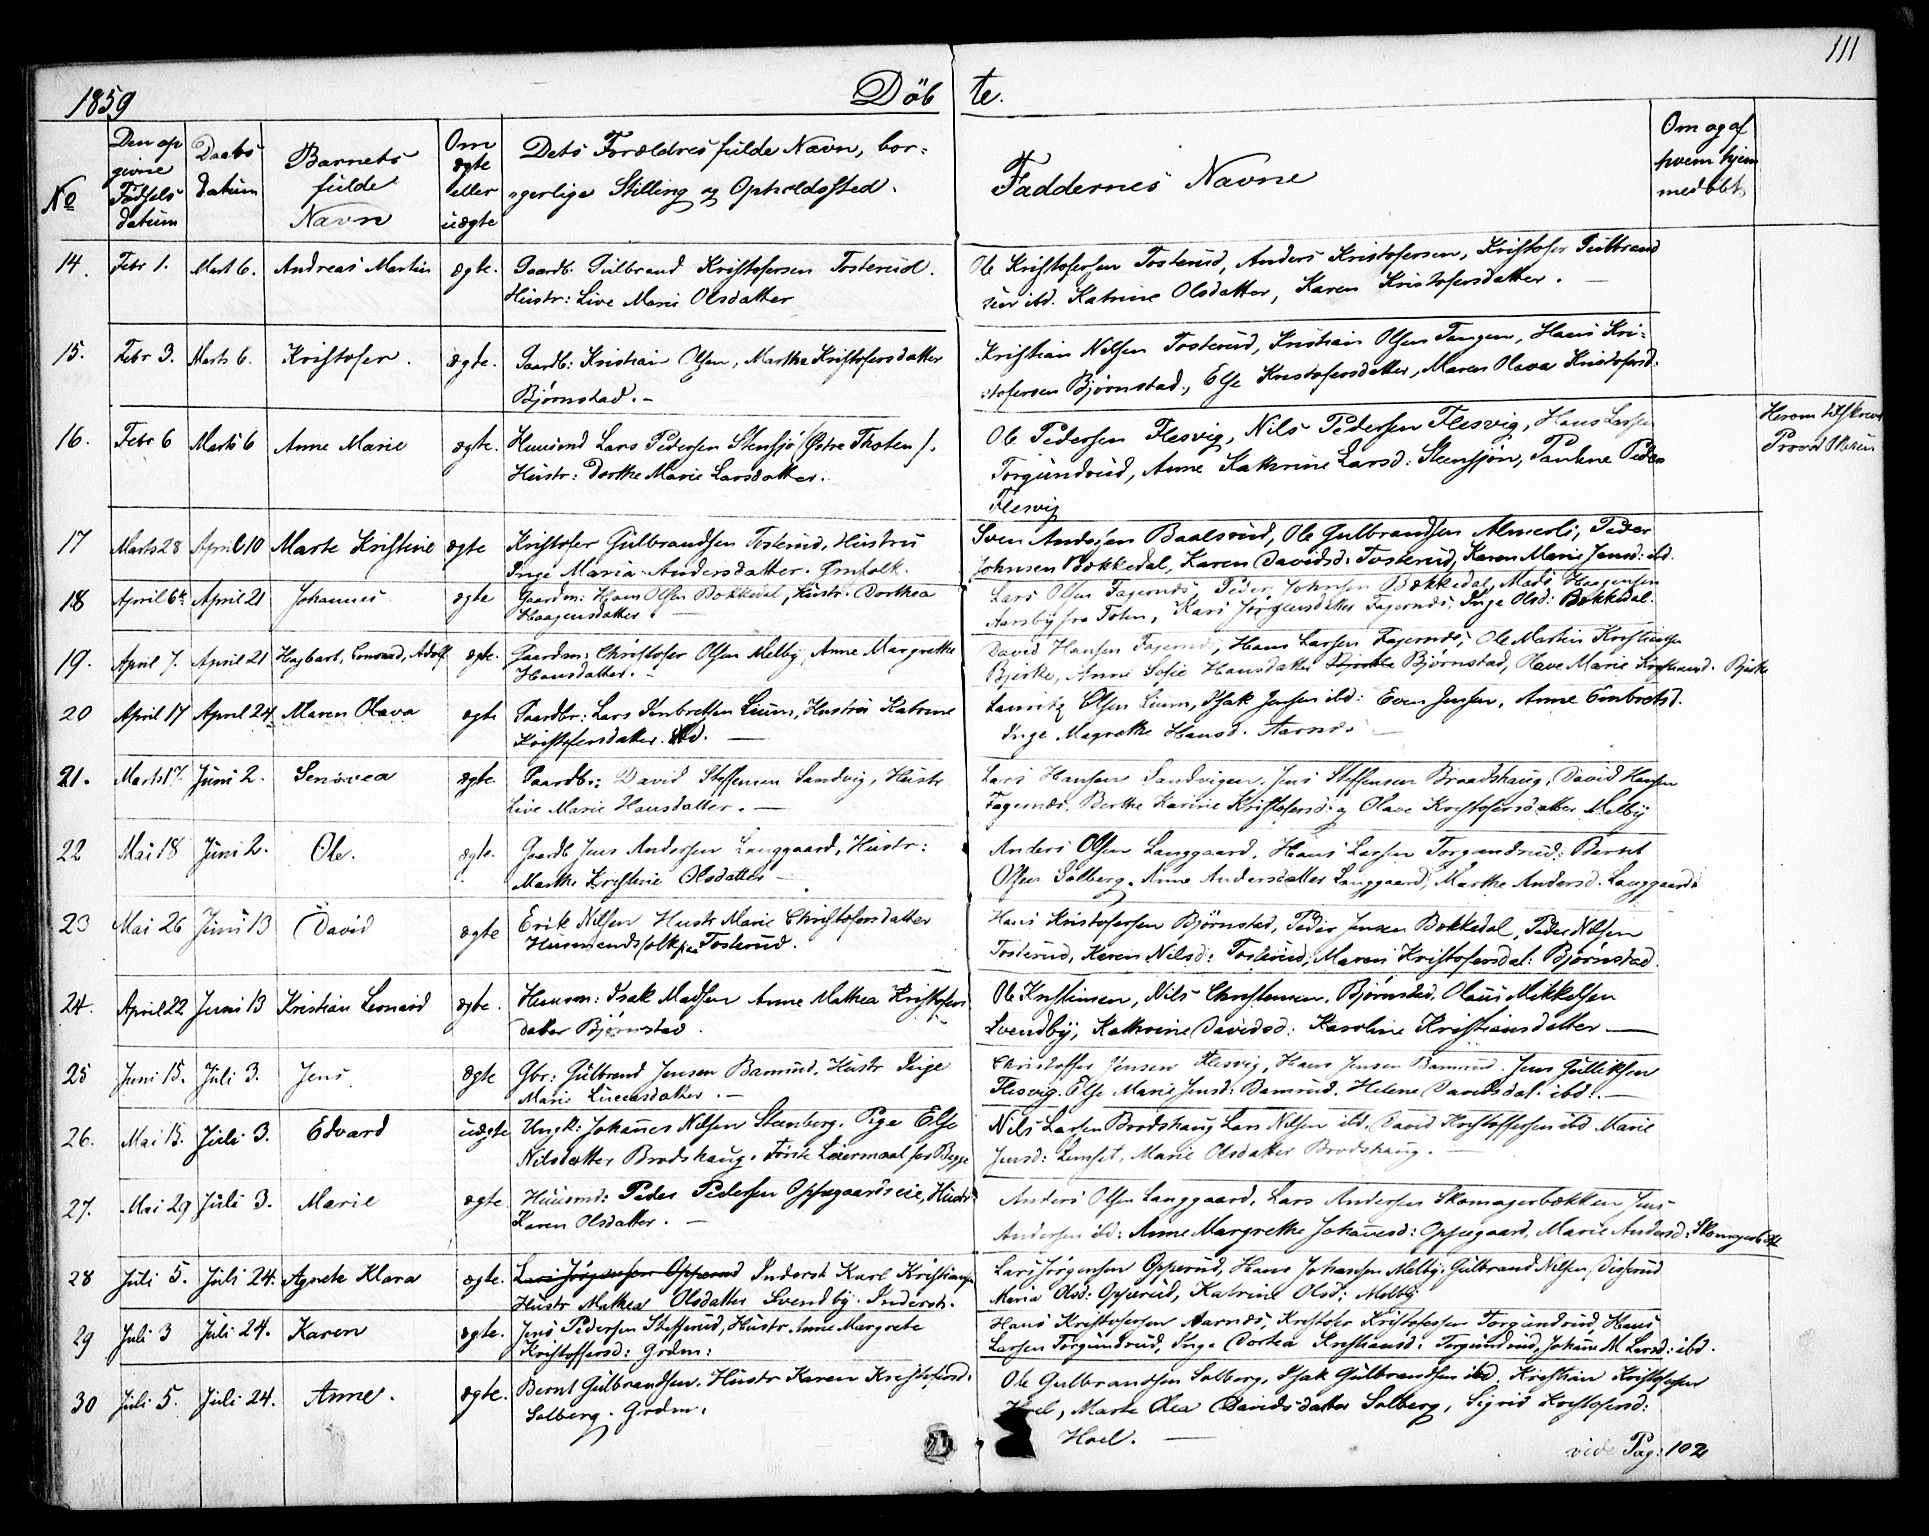 111
1859
Döbte.
No
Den opgivne Fødselsdatum
Daabsdatum
Barnets fulde Navn
Om ægte eller uægte
Dets Forældres fulde Navn, borgerlige Stilling og Opholdssted.
Faddernes Navne
Om og af hvem hjemmedøbt
14. Febr 1. Marts 6. Andreas Martin ægte. Gaardb. Gulbrand Kristofersen Tosterud.
Hustr: Live Marie Olsdatter
Ole Kristofersen Tosterud, Anders Kristofersen, Kristofer Gulbrand
sen ibd. Katrine Olsdatter, Karen Kristofersdatter. —
15. Febr 3. Marts 6. Kristofer. ægte. Gaardb: Kristian Olsen, Marthe Kristofersdatter
Bjørnstad. —
Kristian Nilsen Tosterud, Kristian Olsen Tangen, Hans Kri-
:stofersen Bjørnstad, Else Kristofersdatter, Maren Olava Kristofersd.
16. Febr 6 Marts 6 Anne Marie ægte. Huusmd Lars Pedersen Stensjø (Østre Thoten).
Hustr: Dorthe Marie Larsdatter.
Ole Pedersen Flesvig, Nils Pedersen Flesvig, Hans Larsen
Torgundrud, Anne Kathrine Larsd: Steensjøn, Pauline Peders
Flesvig
Herom tilskrevet
Provst
17 Marts 28 April 10 Marte Kristine ægte Kristofer Gulbrandsen Tosterud, Hustru
Inge Maria Andersdatter.
Sven Andersen Baalsrud, Ole Gulbrandsen Almerli, Peder
Johnsen Bækkedal, Karen Davidsd: Tosterud, Karen Marie Jensd: ibd.
18 April 6te April 21 Johannes ægte Gaardm: Hans Olsen Bækkedal, Hustr. Dorthea
Haagensdatter. —
Lars Olsen Fagernæs, Peder Johnsen Bækkedal, Mads Haagensen
Aarsby fra Toten, Kari Jørgensdatter Fagernæs, Inge Olsd: Bækkedal.
19. April 7. April 21 Hagbart, Conrad, Adolf ægte. Gaardm: Christofer Olsen Melby, Anne Margrethe
Hansdatter. —
David Hansen Fagernæs, Hans Larsen Fagernæs, Ole Martin Kristiansen
Bjerke, Anne Sofie Hansdatter Bjerke Bjørnstad, Olave Marie Kristiansd. Bjerke
20 April 17 April 24 Maren Olava ægte Gaardbr: Lars Embretsen Lium, Hustru Katrine
Kristofersdatter. ibd. —
Lauritz Olsen Lium, Isak Jensen ibd: Even Jensen, Anne Embretsd.
Inge Magrethe Hansd. Aarnæs
21. Marts 17 Juni 2. Genovea ægte. Gaardbr: David Steffensen Sandvig, Hustr
Live Marie Hansdatter. —
Lars Hansen Sandvigen, Jens Steffensen Braadshaug, David Hansen
Fagernæs. Berthe Karine Kristofersd: og Olave Kristofersdatter Melby
22 Mai 18 Juni 2. Ole. ægte. Gaardb Jens Andersen Langgaard, Hustr:
Marthe Kristine Olsdatter —
Anders Olsen Langgaard, Hans Larsen Torgundrud, Bernt
Olsen Solberg, Anne Andersdatter Langgaard, Marthe Andersd. Langgaard
23 Mai 26 Juni 13 David ægte Erik Nilsen Hustr Marie Christofersdatter
Husmandsfolk paa Tosterud.
Hans Kristofersen Bjørnstad, Peder Jensen Bækkedal, Peder Nilsen
Tosterud, Karen Nilsd: Tosterud, Maren Kristofersdat: Bjørnstad.
24. April 22 Juni 13 Kristian Leonard ægte. Huusm: Isak Madsen Anne Mathea Kristofers
datter Bjørnstad.
Ole Kristiansen, Nils Christensen, Bjørnstad, Olaus Mikkelsen
Svendby, Kathrine Davidsd: Karoline Kristiansdatter —
25 Juni 15. Juli 3. Jens ægte Gbr: Gulbrand Jensen Bamrud, Hustr Inge
Marie Lucasdatter. —
Christoffer Jensen Flesvig, Hans Jensen Bamrud, Jens Gulliksen
Flesvig. Else Marie Jensd: Bamrud. Helene Davidsdat. ibd. —
26. Mai 13. Juli 3. Edvard uægte Ungk: Johannes Nilsen Steenberg. Pige Else
Nilsdatter Brodshaug. Første Leiermaal for Begge
Nils Larsen Brodshaug Lars Nilsen ibd. David Kristoffersen ibd Marie
Jensd: Lemset, Marie Olsdatter Brodshaug. —
27. Mai 29 Juli 3. Marie ægte. Huusmd: Peder Pedersen Oppegaardseie, Hustr
Karen Olsdatter. —
Anders Olsen Langgaard, Lars Andersen Skomagerbækken Jens
Andersen ibd: Anne Margrethe Johannesd: Oppegaard, Marie Andersd: Skomagerbæk
28 Juli 5. Juli 24. Agnete Klara ægte. Lars Jørgensen Opperud Inderst Karl Kristiansen
Hustr Mathea Olsdatter Svendby. Inderst.
Lars Jørgensen Opperud, Hans Johansen Melby, Gulbrand Nilsen
Maria Olsd: Opperud, Katrine Olsd: Melby
29 Juli 3 Juli 24. Karen ægte. Jens Pedersen Stefferud, Hustr Anne Margrete
Kristoffersd: Grdm:
Hans Kristofersen Aarnæs, Kristofer Kristofersen Torgundrud, Hans
Larsen Torgundrud, Inge Dortea Kristiansd: Torgundrud, Johanne M. Larsd: ibd.
30 Juli 5. Juli 24. Anne. ægte. Bernt Gulbrandsen. Hustr Karen Kristofersd.
Solberg. Grdm.
Ole Gulbrandsen Solberg, Isak Gulbrandsen ibd, Kristian Kristofersen
Hoel, Marte Olea Davidsdatter Solberg, Sigrid Kristofersd:
Hoel. —
vide Pag: 102